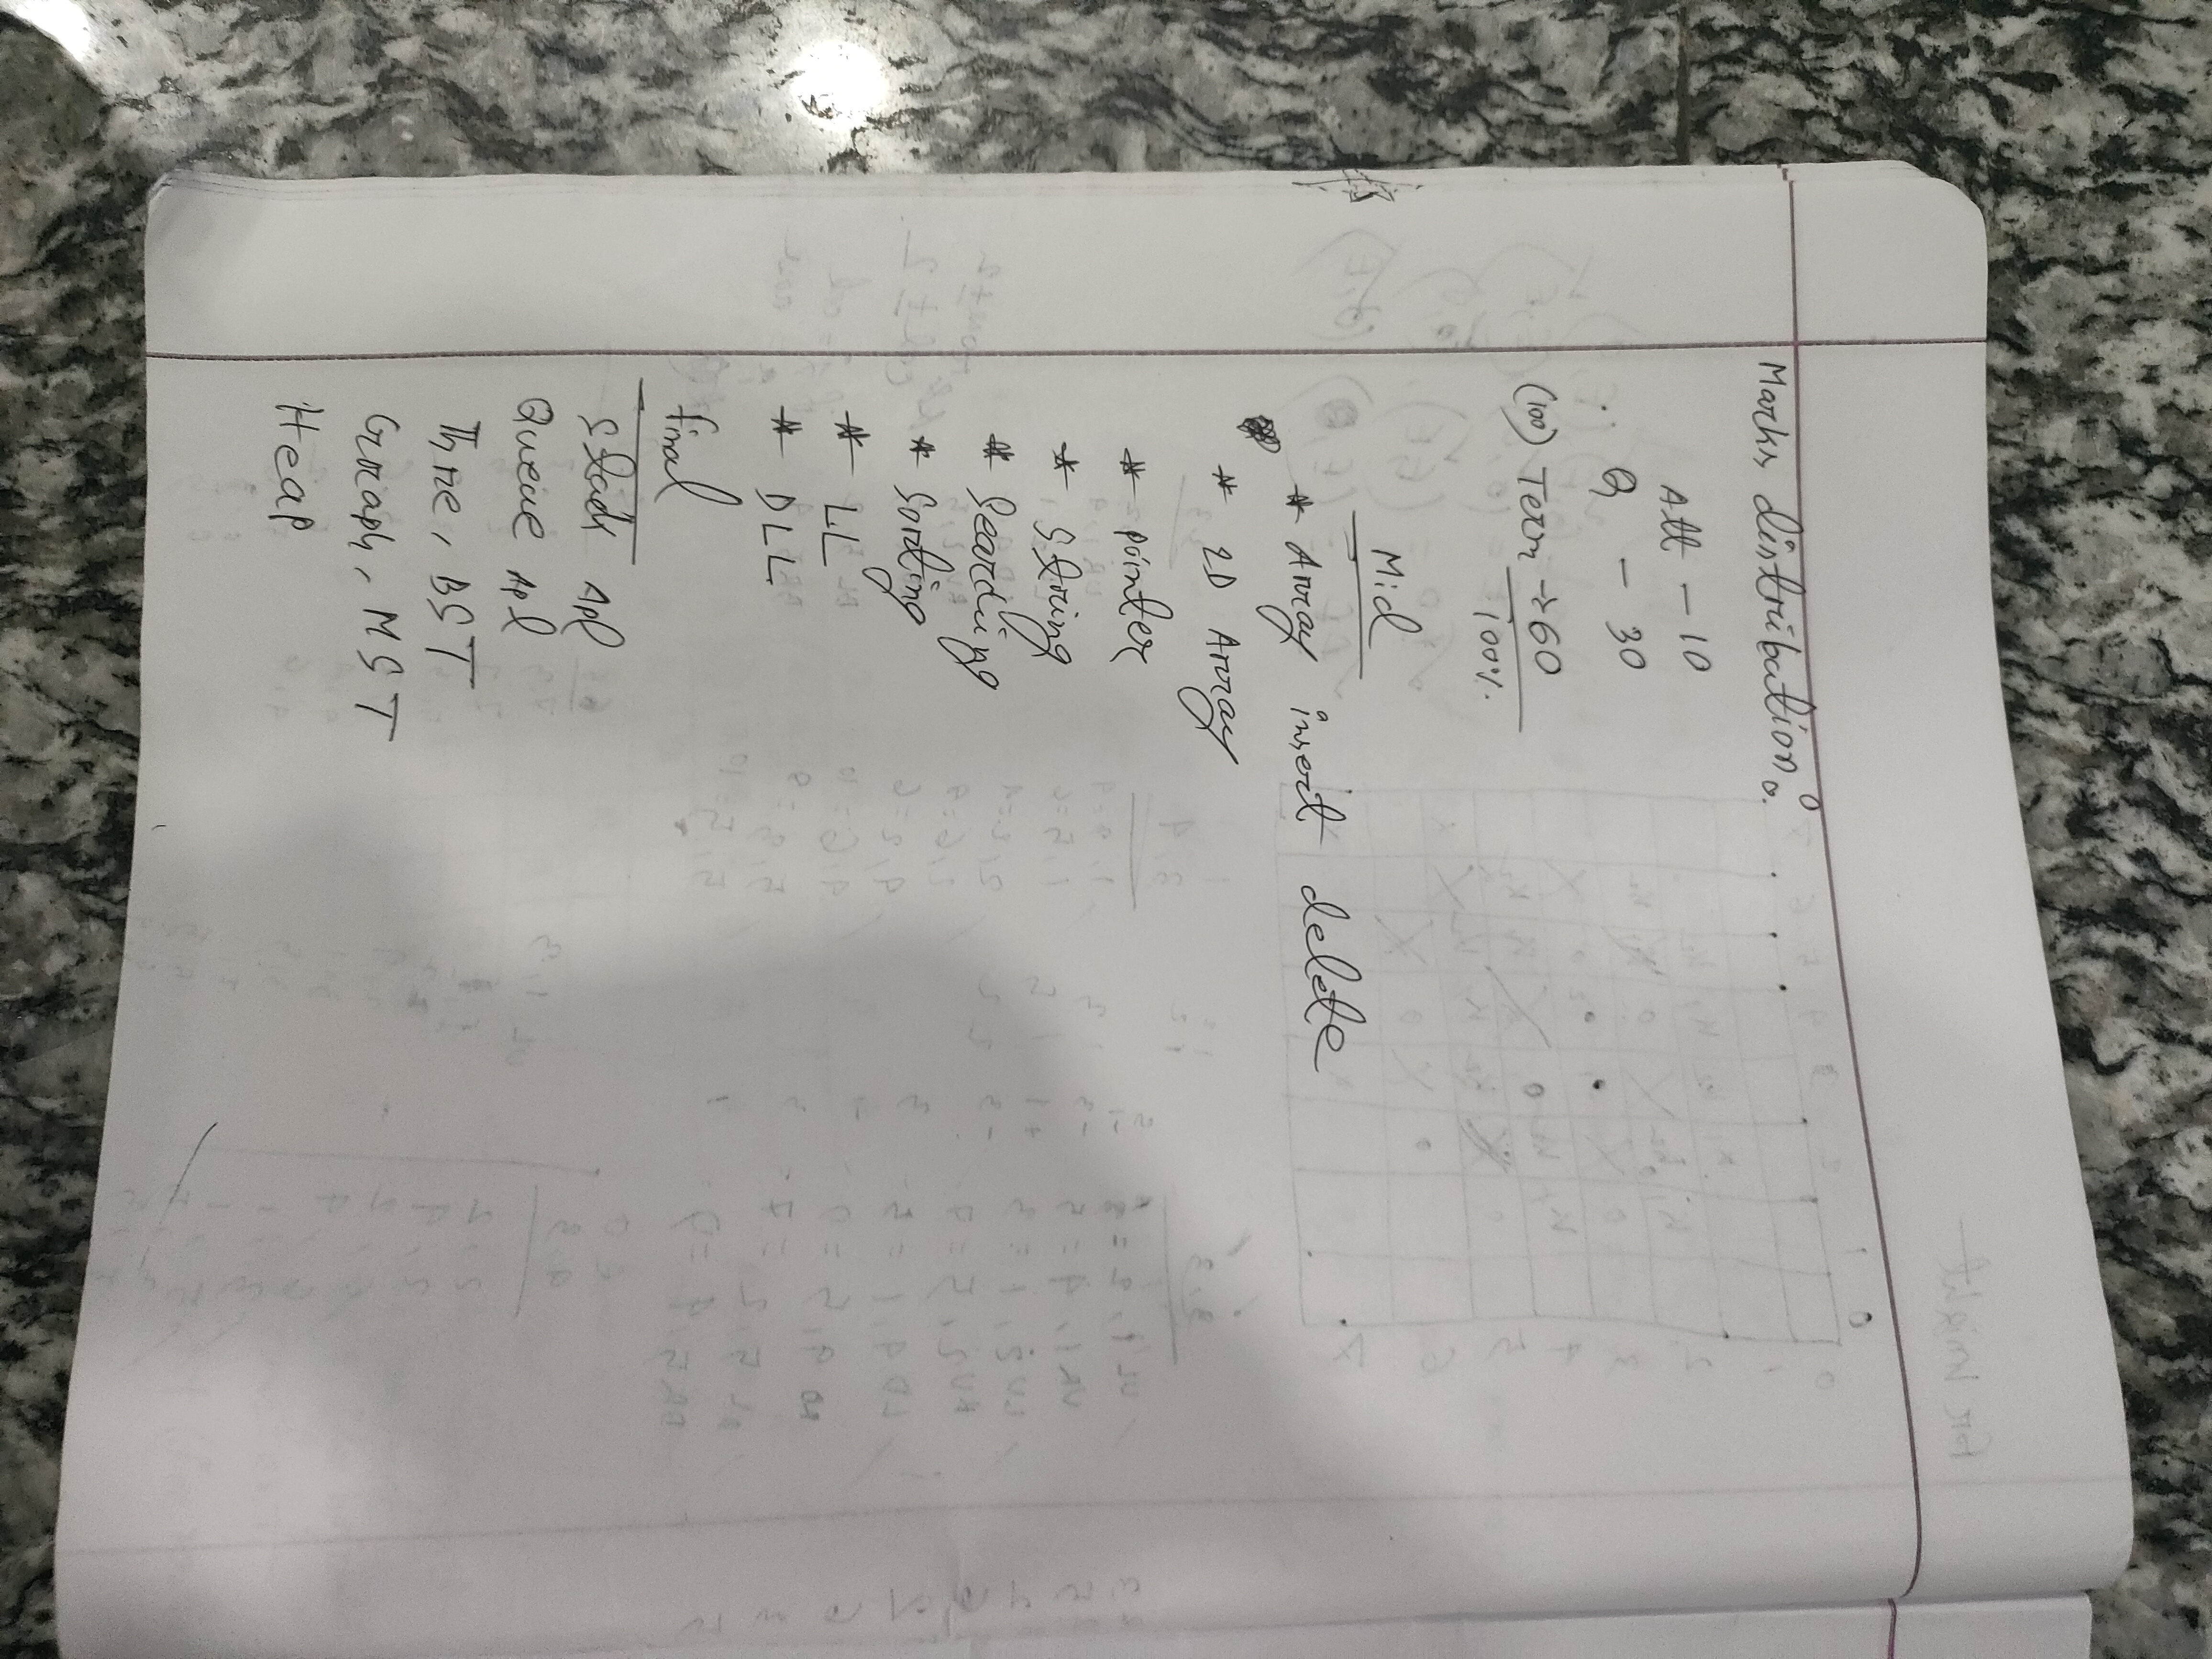 Marks distribution:
Att - 10
Q - 30
(100) Term → 60
100%
Mid
* Array insert delete
* 2D Array
* pointer
* String
* Searching
* Sorting
* LL
* DLL
final
Stack Apl
Queue Apl
Three, BST
Graph, MST
Heap